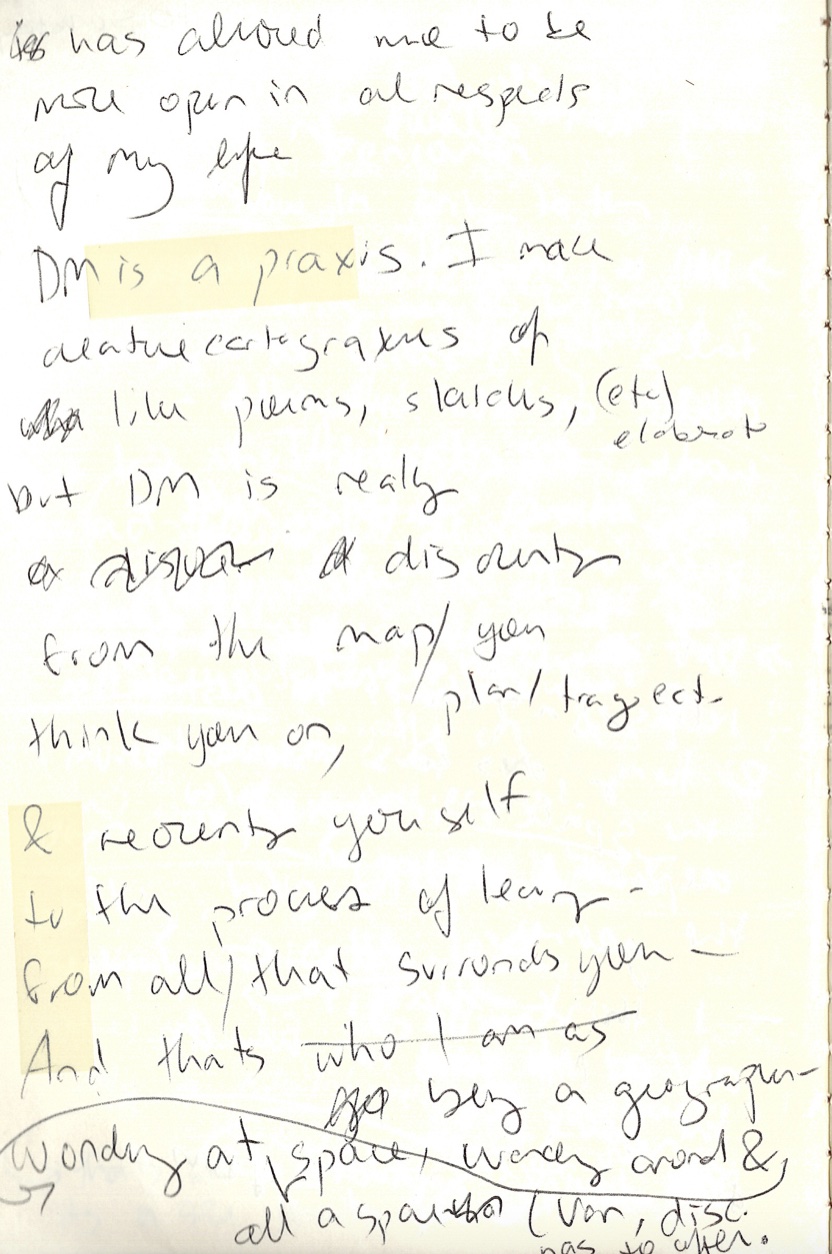 has allowed me to be
more open in al respects
of my life
DM is a praxis. I make
of
like poems, sketches, (etc)
elaborate
but DM is really
disorienting
from the map/ your
plan/ traject.
think your on,
& reorienting yourself
to the process of learning -
from all/that surronds you -
And thats who I am as
being a geographer -
wondering at space, wandering around &
all a space (
has to offer.